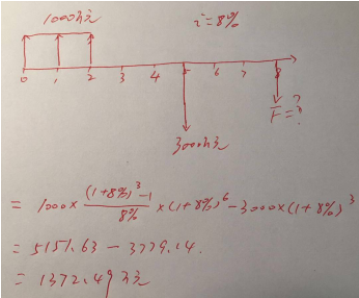 1000万元 i=8%
0 1 2 3 4 5 6 7 8
F=?
3000万元
= 1000×\frac{(1+8%)^3-1}{8%}×(1+8%)^6-3000×(1+8%)^3
= 5151.63-3779.14.
= 1372.49万元